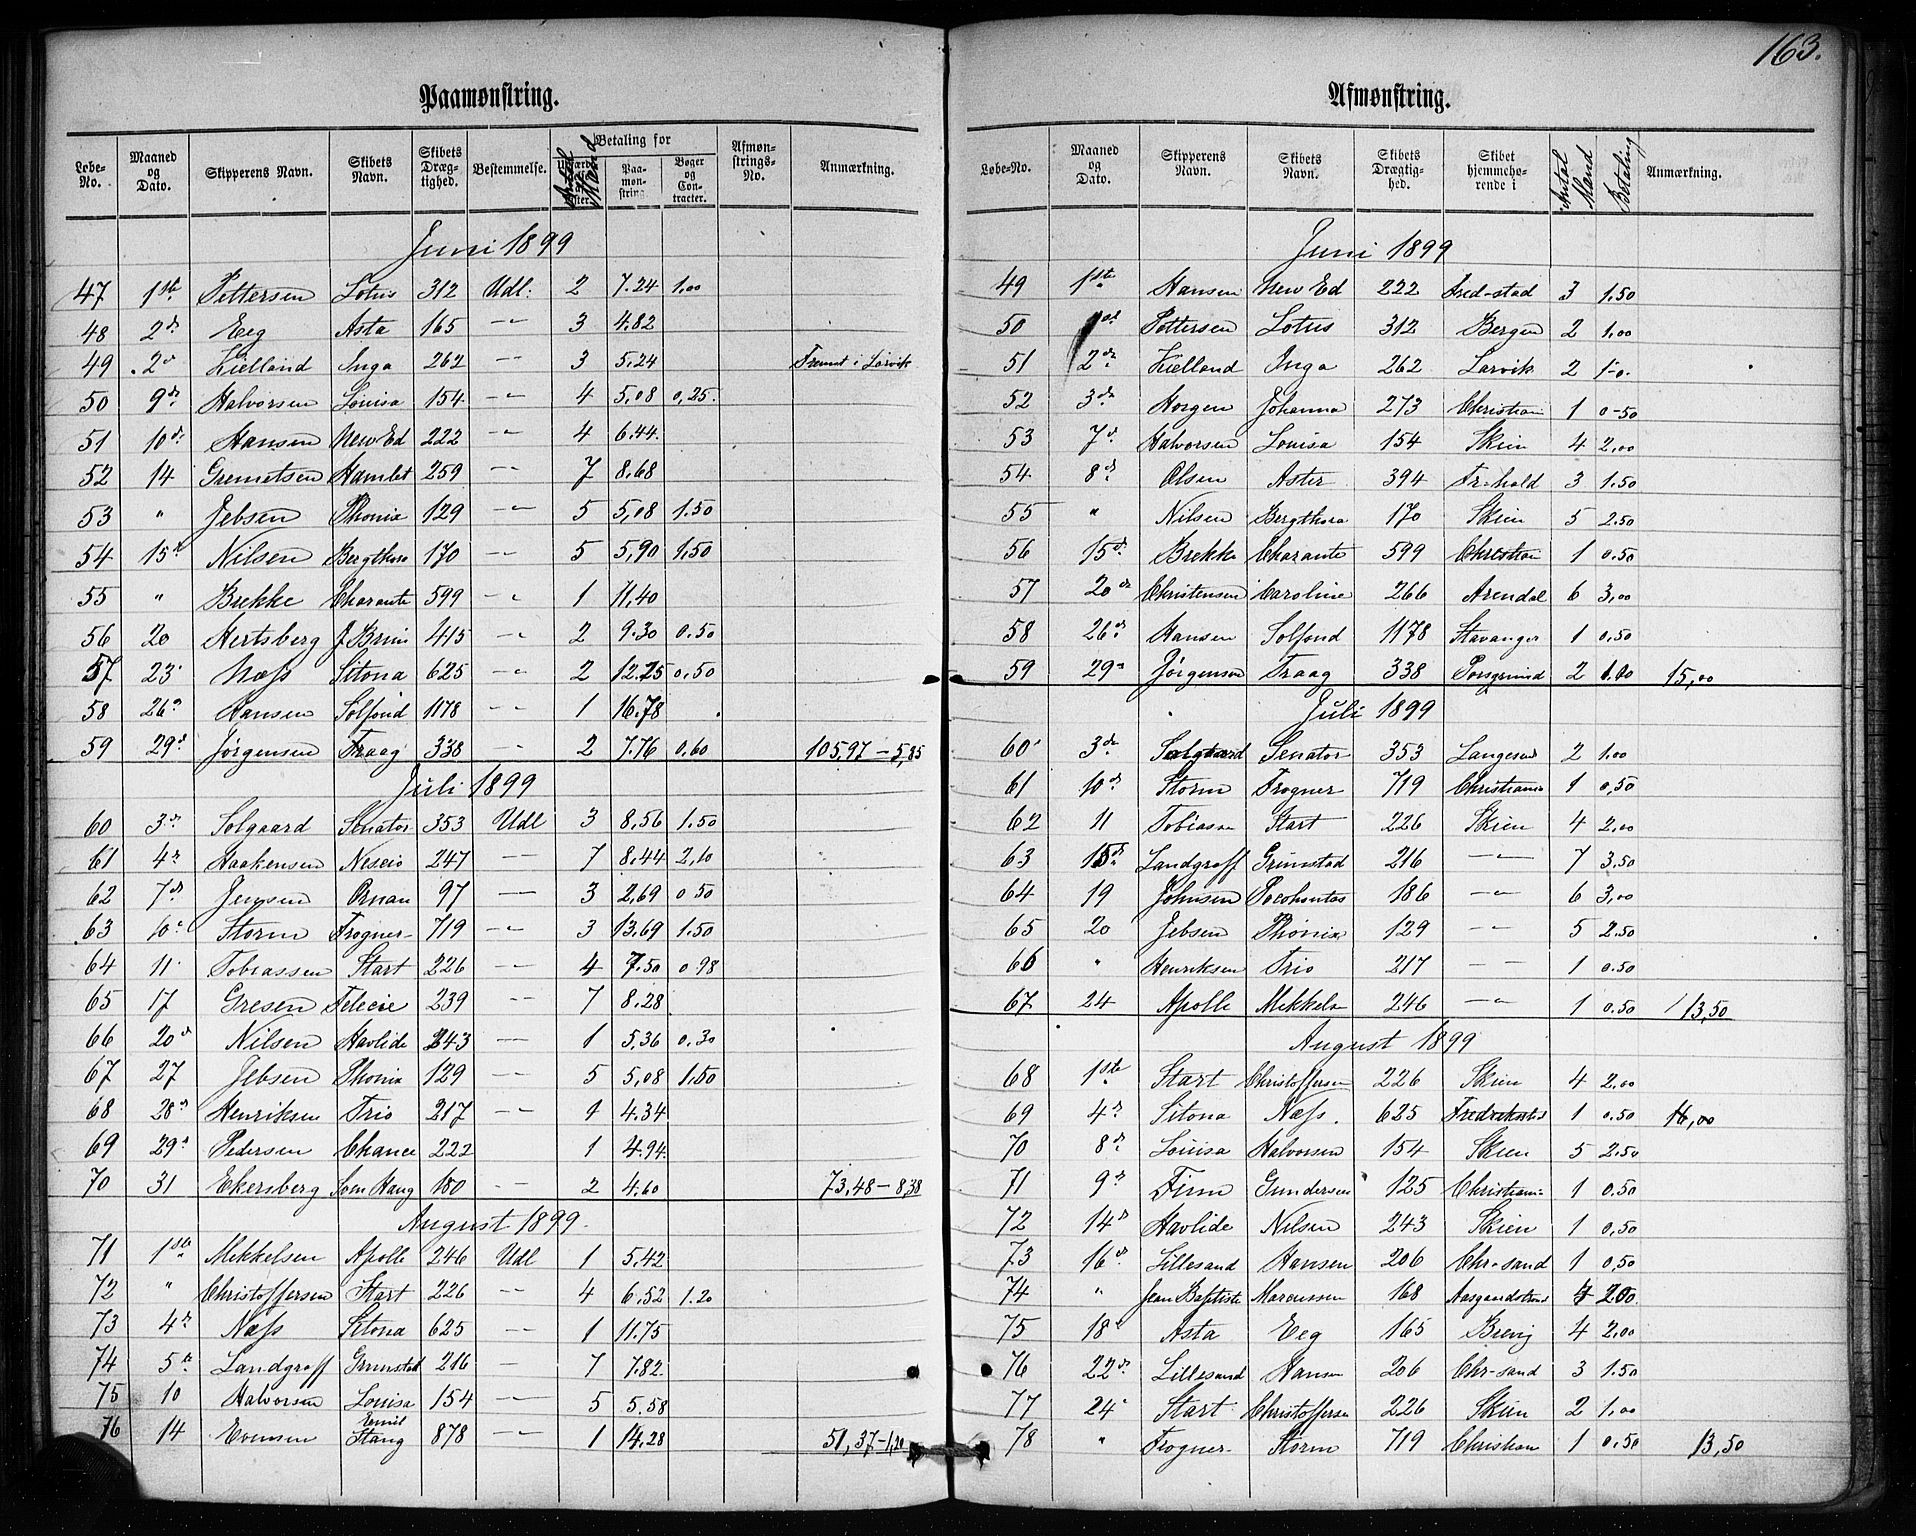 163.
Paamønstring.
Løbe-No. | Maaned og Dato. | Skipperens Navn. | Skibets Navn. | Skibets Drægtighed. | Bestemmelse. | Antal Mand | Betaling for Paamønstring | Bøger og Contracter. | Afmønstrings-No. | Anmærkning.
Juni 1899
47 1ste Pettersen Lotus 312 Udl: 2 7.24 1.00
48 2d Eeg Asta 165 -"- 3 4.82
49 2d Kielland Inga 262 -"- 3 5.24 Fremst i Larvik
50 9de Halvorsen Louisa 154 -"- 4 5,08 0,25.
51 10d. Hansen New Ed 222 -"- 4 6.44.
52 14 Gremetsen Hamlet 259 -"- 7 8,68
53 " Jebsen Phonix 129 -"- 5 5,08 1.50
54 15d Nilsen Bergthora 170 -"- 5 5,90 1,50
55 " Brekke Charante 599 -"- 1 11,40
56 20 Hertsberg J. Bruns 415 -"- 2 9.30 0.50
57 23 Næss Sitona 625 -"- 2 12.25 0,50
58 26d Hansen Solfond 1178 -"- 1 16.78
59 29d Jørgensen Traag 338 - 2 7.76 0,60 105,97 - 5,85
Juli 1899
60 3de Solgaard Senator 353 Udl 3 8,56 1.50
61 4d Haakensen Neseio 247 -"- 7 8,44 2,10
62 7de Jensen Ornan 97 -"- 3 2,69 0 50
63 10d Storm Frogner 719 -"- 3 13.69 1.50
64 11 Tobiassen Start 226 -"- 4 7.50 0 98
65 17 Gresen Felecie 239 -"- 7 8.28
66 20d Nilsen Havlide 243 -"- 1 5,36 0.30
67 27 Jebsen Phonix 129 -"- 5 5,08 1,50
68 28d Henriksen Trio 217 -"- 1 4.34
69 29d Pedersen Chance 222 1 4.94
70 31 Ekersberg Sven Haug 180 -"- 2 4.60 73,48 - 8,38
August 1899
71 1ste Mikkelsen Apolle 246 Udl 1 5.42
72 " Christoffersen Start 226 -"- 4 6,52 1.20
73 4d Næss Sitona 625 -"- 1 11.75
74 5te Landgraff Grimstad 216 - 7 7.82
75 10 Halvorsen Louisa 154 -"- 5 5,58
76 14 Evensen Emil Stang 878 -"- 1 14.28 51,37 - 1,20
Afmønstring.
Løbe-No. | Maaned og Dato. | Skipperens Navn. | Skibets Navn. | Skibets Drægtighed. | Skibet hjemmehørende i | Antal Mand | Betaling | Anmærkning.
Juni 1899
49 1ste Hansen New Ed 222 Fred-stad 3 1.50
50 Pettersen Lotus 312 Bergen 2 1,00
51 2de Kielland Inga 262 Larvik 2 1-0.
52 3de Horgen Johanna 273 Christian 1 0-50
53 7d. Halvorsen Louisa 154 Skien 4 2,00
54 8d. Olsen Aster 394 Fr-hald 3 1.50
55 " Nilsen Bergthora 170 Skien 5 2.50
56 15d. Brekke Charante 599 Christian 1 0.50
57 20de Christensen Caroline 266 Arendal 6 3,00
58 26d. Hansen Solfond 1178 Stavanger 1 0.50
59 29d Jørgensen Traag 338 Porsgrund 2 1.00 15,00
Juli 1899
60 3de Solgaard Senator 353 Langesun 2 1.00
61 10d. Storm Frogner 719 Christiania 1 0,50
62 11 Tobiassen Start 226 Skien 4 2,00
63 15d Landgraff Grimstad 216 -"- 7 3,50
64 19 Johnsen Pocohontas 186 -"- 6 3,00
65 20 Jebsen Phonix 129 -"- 5 2.50
66 " Henriksen Trio 217 -"- 1 0.50
67 24 Apolle Mikkelsn 246 -"- 1 0.50 13,50
August 1899
68 1ste Start Christoffersen 226 Skien 4 2,00
69 4d Sitona Næss. 625 Fredrikstad 1 0.50 16,00
70 8d Louisa Halvorsen 154 Skien 5 2.50
71 9d Finn Gundersen 125 Christiania 1 0.50
72 14d Havlide Nilsen 243 Skien 1 0,50
73 16d Lillesand Hansen 206 Chr-sand 1 0,50
74 " Jean Baptiste Marcussen 168 Aasgaardstrand 4 2.00
75 18d Asta Eeg 165 Brevig 4 2,00
76 22de Lillesand Hansen 206 Chr-sand 3 1.50
77 24 Start Christoffersen 226 Skien 2 1,00
78 " Frogner Storm 719 Christian 1 0.50 13,50